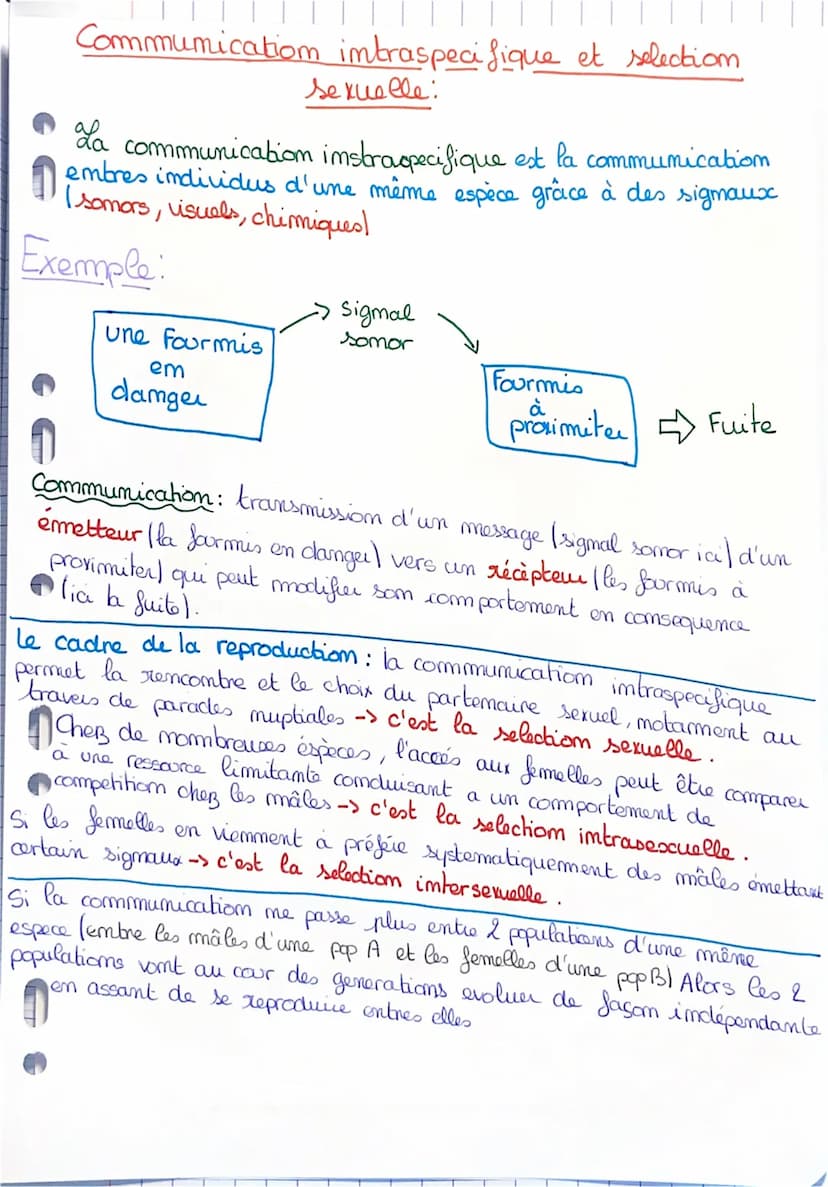 Communication intraspecifique et selection
sexuelle:
La communication instraspecifique est la communication
entres individus d'une même espèce grâce à des signaux
(sonors, visuels, chimiques)
Exemple:
une Fourmis
en
danger
-> Signal
sonor
Fourmis
à
proximiter
⇨ Fuite
Communication: transmission d'un message (signal sonor ici) d'un
émetteur (la fourmis en danger) vers un récèpteur (les fourmis à
proximiter) qui peut modifier son comportement en consequence
(ici la fuite).
Le cadre de la reproduction: la communication intraspecifique
permet la rencontre et le choix du partenaire sexuel, notamment au
travers de parades nuptiales -> c'est la selection sexuelle.
Chez de nombreuses éspèces, l'accés aux femelles peut être comparer
à une ressource limitante conduisant a un comportement de
competition chez les mâles -> c'est la selection intrasexuelle.
Si les femelles en viennent à préfére systematiquement des mâles émettant
certain signaux -> c'est la selection intersexuelle.
Si la communication ne passe plus entre 2 populations d'une même
espece (entre les mâles d'une pop A et les femelles d'une pop B) Alors les 2
populations vont au cour des generations evoluer de façon indépendante
en assant de se reproduire entres elles